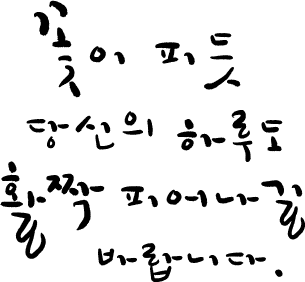 꽃이 피듯
당신의 하루도
활짝 피어나길
바랍니다.